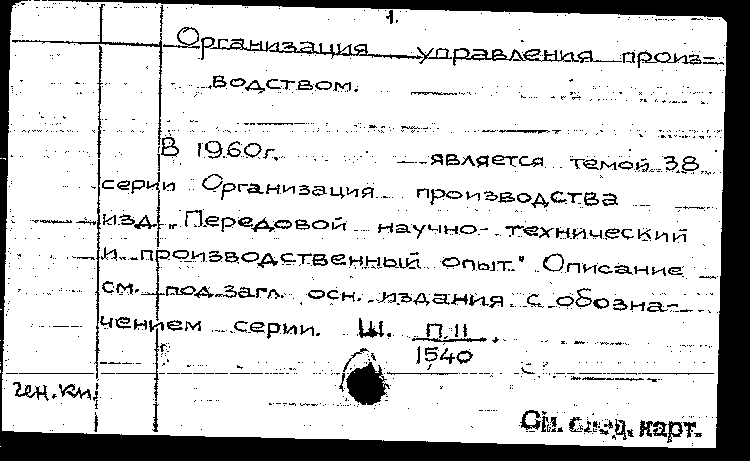 1.
Организация управления произ-
водством.
В 1960г. является темой 38
серии Организация производства
изд. „Передовой научно-технический
и производственный опыт." Описание
см. под загл. осн. издания с обозна-
чением серии. Ш. П.11
1540
ген.кн.
См. след. карт.